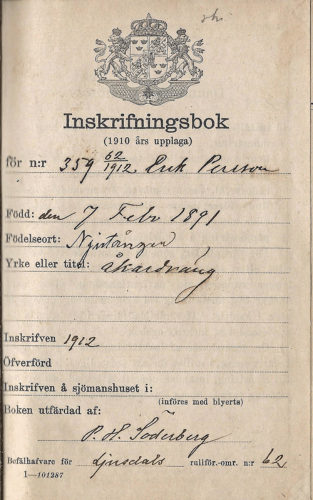 Inskrifningsbok
(1910 års upplaga)
för n:r 359 62/1912. Erik Persson
Född: den 7 Febr 1891
Födelseort:
Yrke eller titel: åkardräng
Inskrifven 1912
Öfverförd
Inskrifven å sjömanshuset i:
(införes med blyerts)
Boken utfärdad af:
P. H. Söderberg
Befälhafvare för Ljusdals rullför.-omr. n:r 62
1—101287